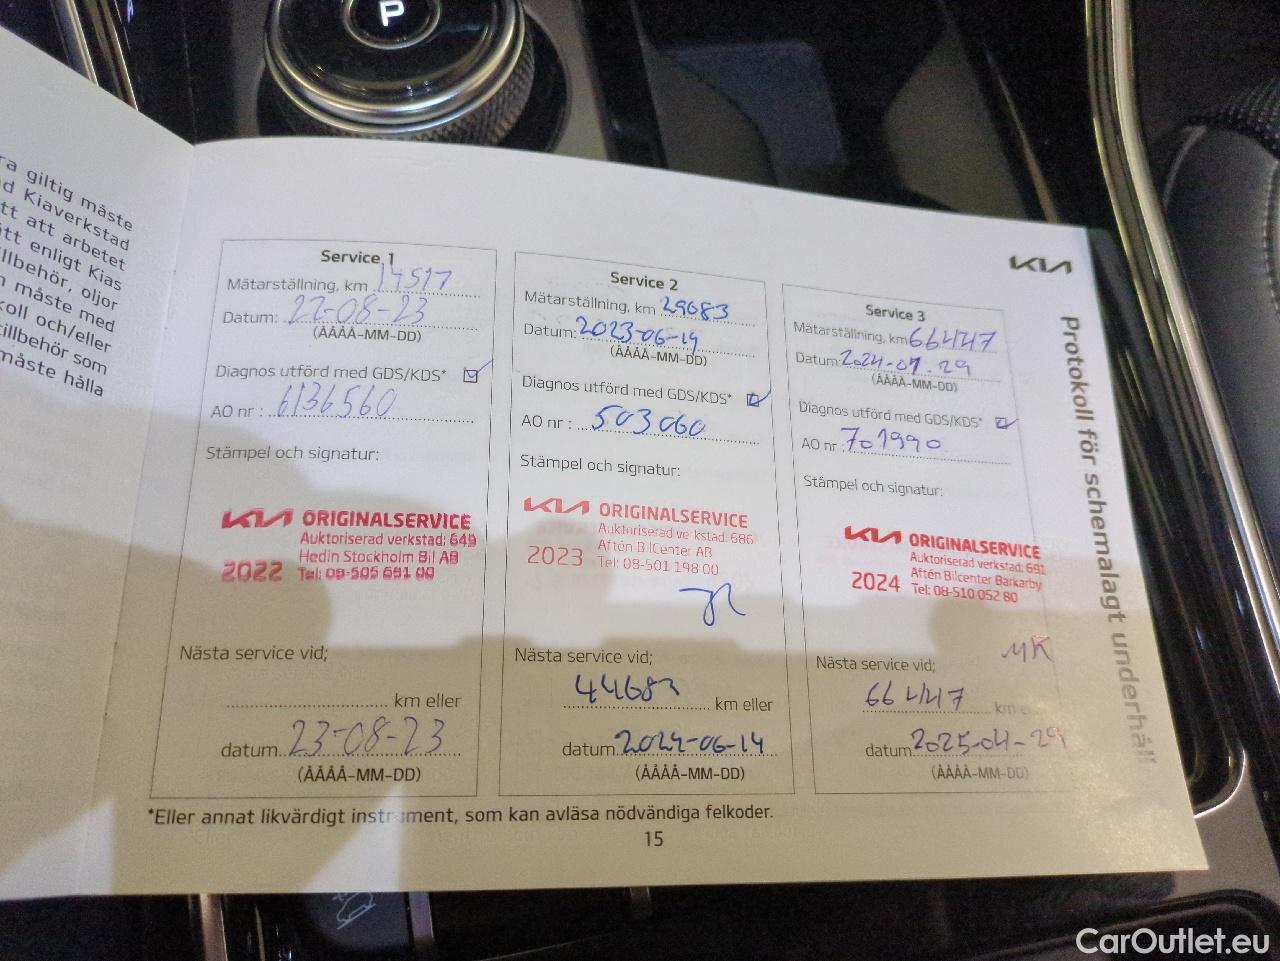 P
ra giltig måste
d Kiaverkstad
tt att arbetet
ätt enligt Kias
llbehör, oljor
n måste med
koll och/eller
tillbehör som
måste hålla
KIA
Protokoll för schemalagt underhåll
Service 1
Mätarställning, km 14517
Datum: 22-08-23
(ÅÅÅÅ-MM-DD)
Diagnos utförd med GDS/KDS*
AO nr : 6136560
Stämpel och signatur:
KIA ORIGINALSERVICE
Auktoriserad verkstad: 649
Hedin Stockholm Bil AB
2022 Tel: 08-505 691 00
Nästa service vid;
km eller
datum. 23-08-23
(ÅÅÅÅ-MM-DD)
Service 2
Mätarställning, km 29683
Datum: 2023-06-14
(ÅÅÅÅ-MM-DD)
Diagnos utförd med GDS/KDS*
AO nr : 503060
Stämpel och signatur:
KIA ORIGINALSERVICE
Auktoriserad ve kstad: 686
Aftén BilCenter AB
2023 Tel: 08-501 198 00
Nästa service vid;
44683 km eller
datum 2024-06-14
(ÅÅÅÅ-MM-DD)
Service 3
Mätarställning, km 66447
Datum: 2024-01-29
(ÅÅÅÅ-MM-DD)
Diagnos utförd med GDS/KDS*
AO nr : 701990
Stämpel och signatur:
KIA ORIGINALSERVICE
Auktoriserad verkstad: 691
Aftén Bilcenter Barkarby
2024 Tel: 08-510 052 80
MK
Nästa service vid;
66447 km e
datum 2025-01-29
(ÅÅÅÅ-MM-DD)
*Eller annat likvärdigt instrument, som kan avläsa nödvändiga felkoder.
15
CarOutlet.eu